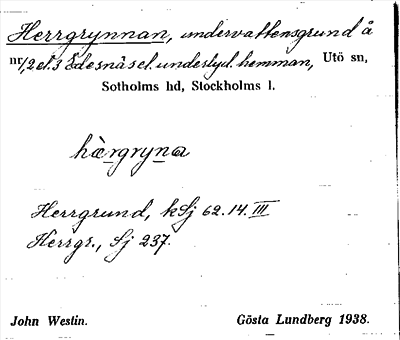 Herrgrynnan, undervattensgrund å
nr 1, 2 el. 3 Edesnäs el. underlyd. hemman, Utö sn,
Sotholms hd, Stockholms l.
hærgryna
Herrgrund, kSj 62.14.III
Herrgr., Sj 237.
John Westin. Gösta Lundberg 1938.